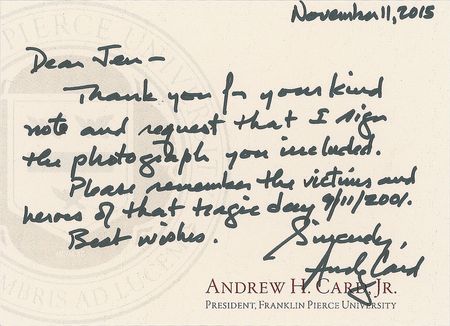 PIERCE UNIVER
November 11, 2015
Dear Jen –
Thank you for your kind
note and request that I sign
the photograph you included.
Please remember the victims and
heroes of that tragic day 9/11/2001.
Best wishes.
Sincerely,
Andy Card
ANDREW H. CARD, JR.
PRESIDENT, FRANKLIN PIERCE UNIVERSITY